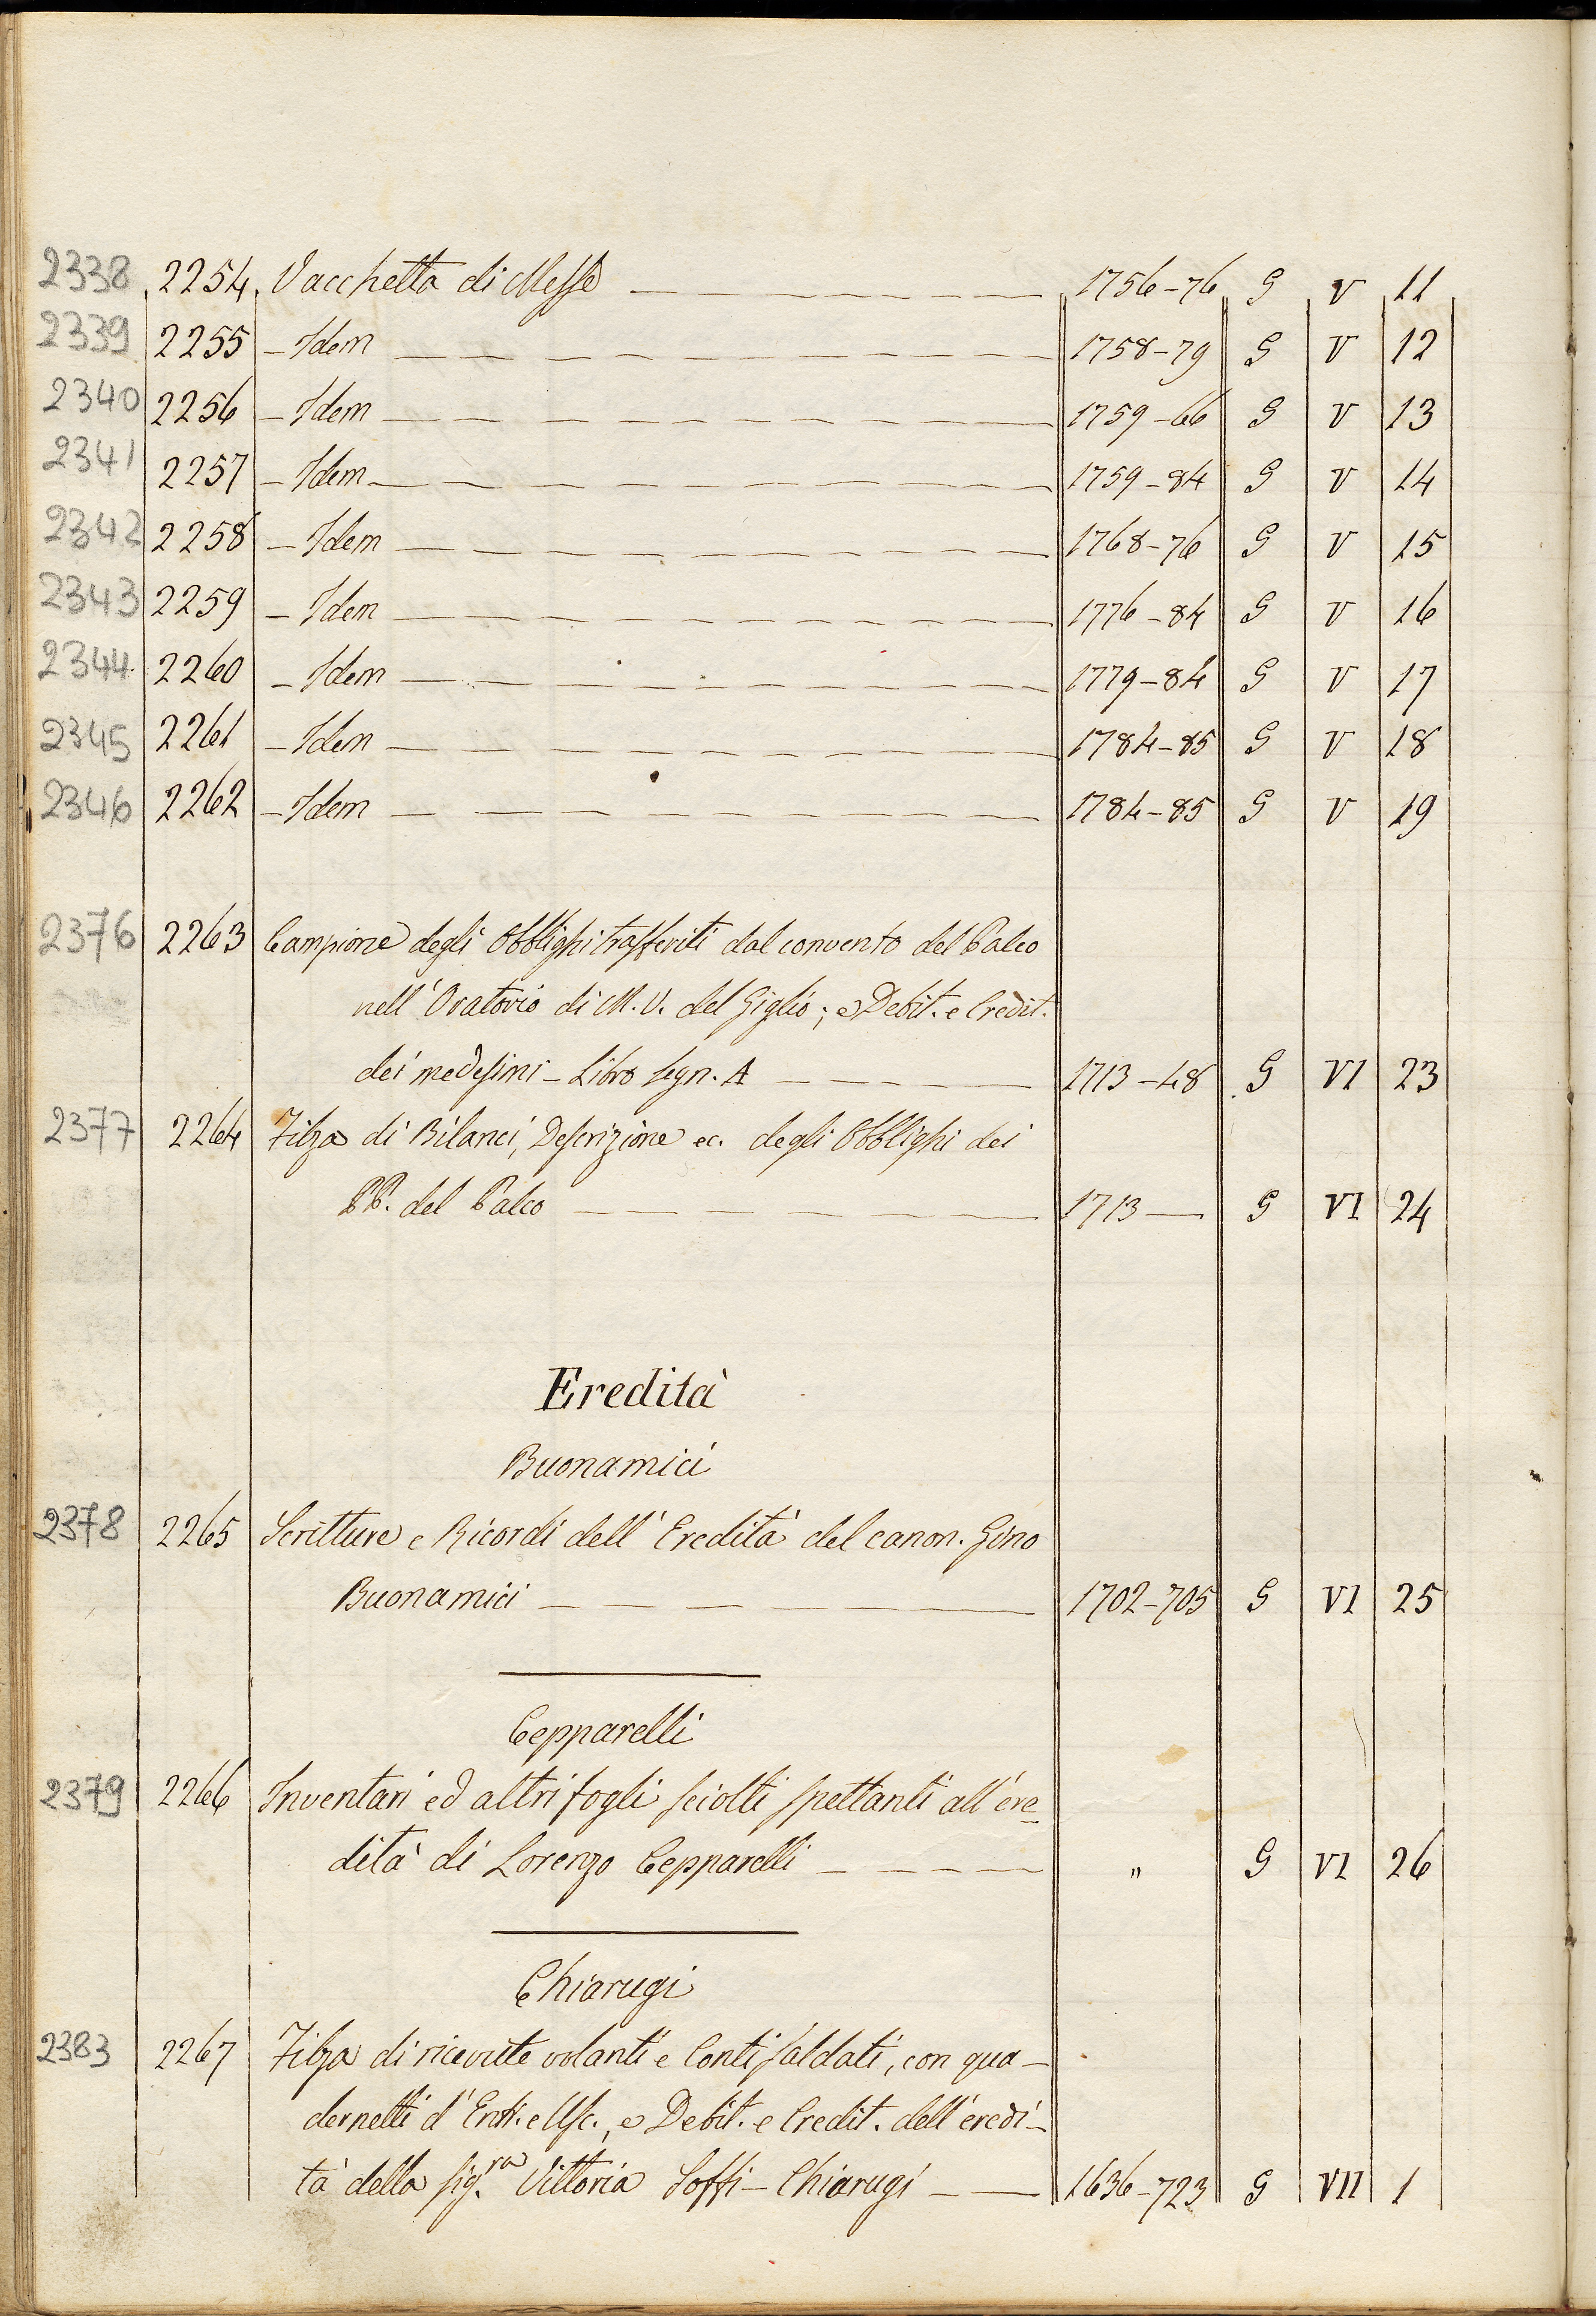 2338 2254 Vacchetta di Messe 1756-76 G V 11
2339 2255 - Idem 1758-79 G V 12
2340 2256 - Idem 1759-66 G V 13
2341 2257 - Idem 1759-84 G V 14
2342 2258 - Idem 1768-76 G V 15
2343 2259 - Idem 1776-84 G V 16
2344 2260 - Idem 1779-84 G V 17
2345 2261 - Idem 1784-85 G V 18
2346 2262 - Idem 1784-85 G V 19
2376 2263 Campione degli Obblighi trasferiti dal convento del Palco
nell'Oratorio di M. V. del Giglio; e Debit. e Credit.
dei medesimi - Libro segn. A 1713-48 G VI 23
2377 2264 Filza di Bilanci, Descrizione ec. degli Obblighi dei
PP. del Palco 1713 — G VI 24
Eredità
Buonamici
2378 2265 Scritture e Ricordi dell'Eredità del canon. Gino
Buonamici 1702-705 G VI 25
Cepparelli
2379 2266 Inventari ed altri fogli sciolti spettanti all'ere-
dità di Lorenzo Cepparelli " G VI 26
Chiarugi
2383 2267 Filza di ricevute volanti e Conti saldati, con qua-
dernetti d'Entr. e Usc., e Debit. e Credit. dell'eredi-
tà della sig.ra Vittoria Soffi-Chiarugi 1636-723 G VII 1